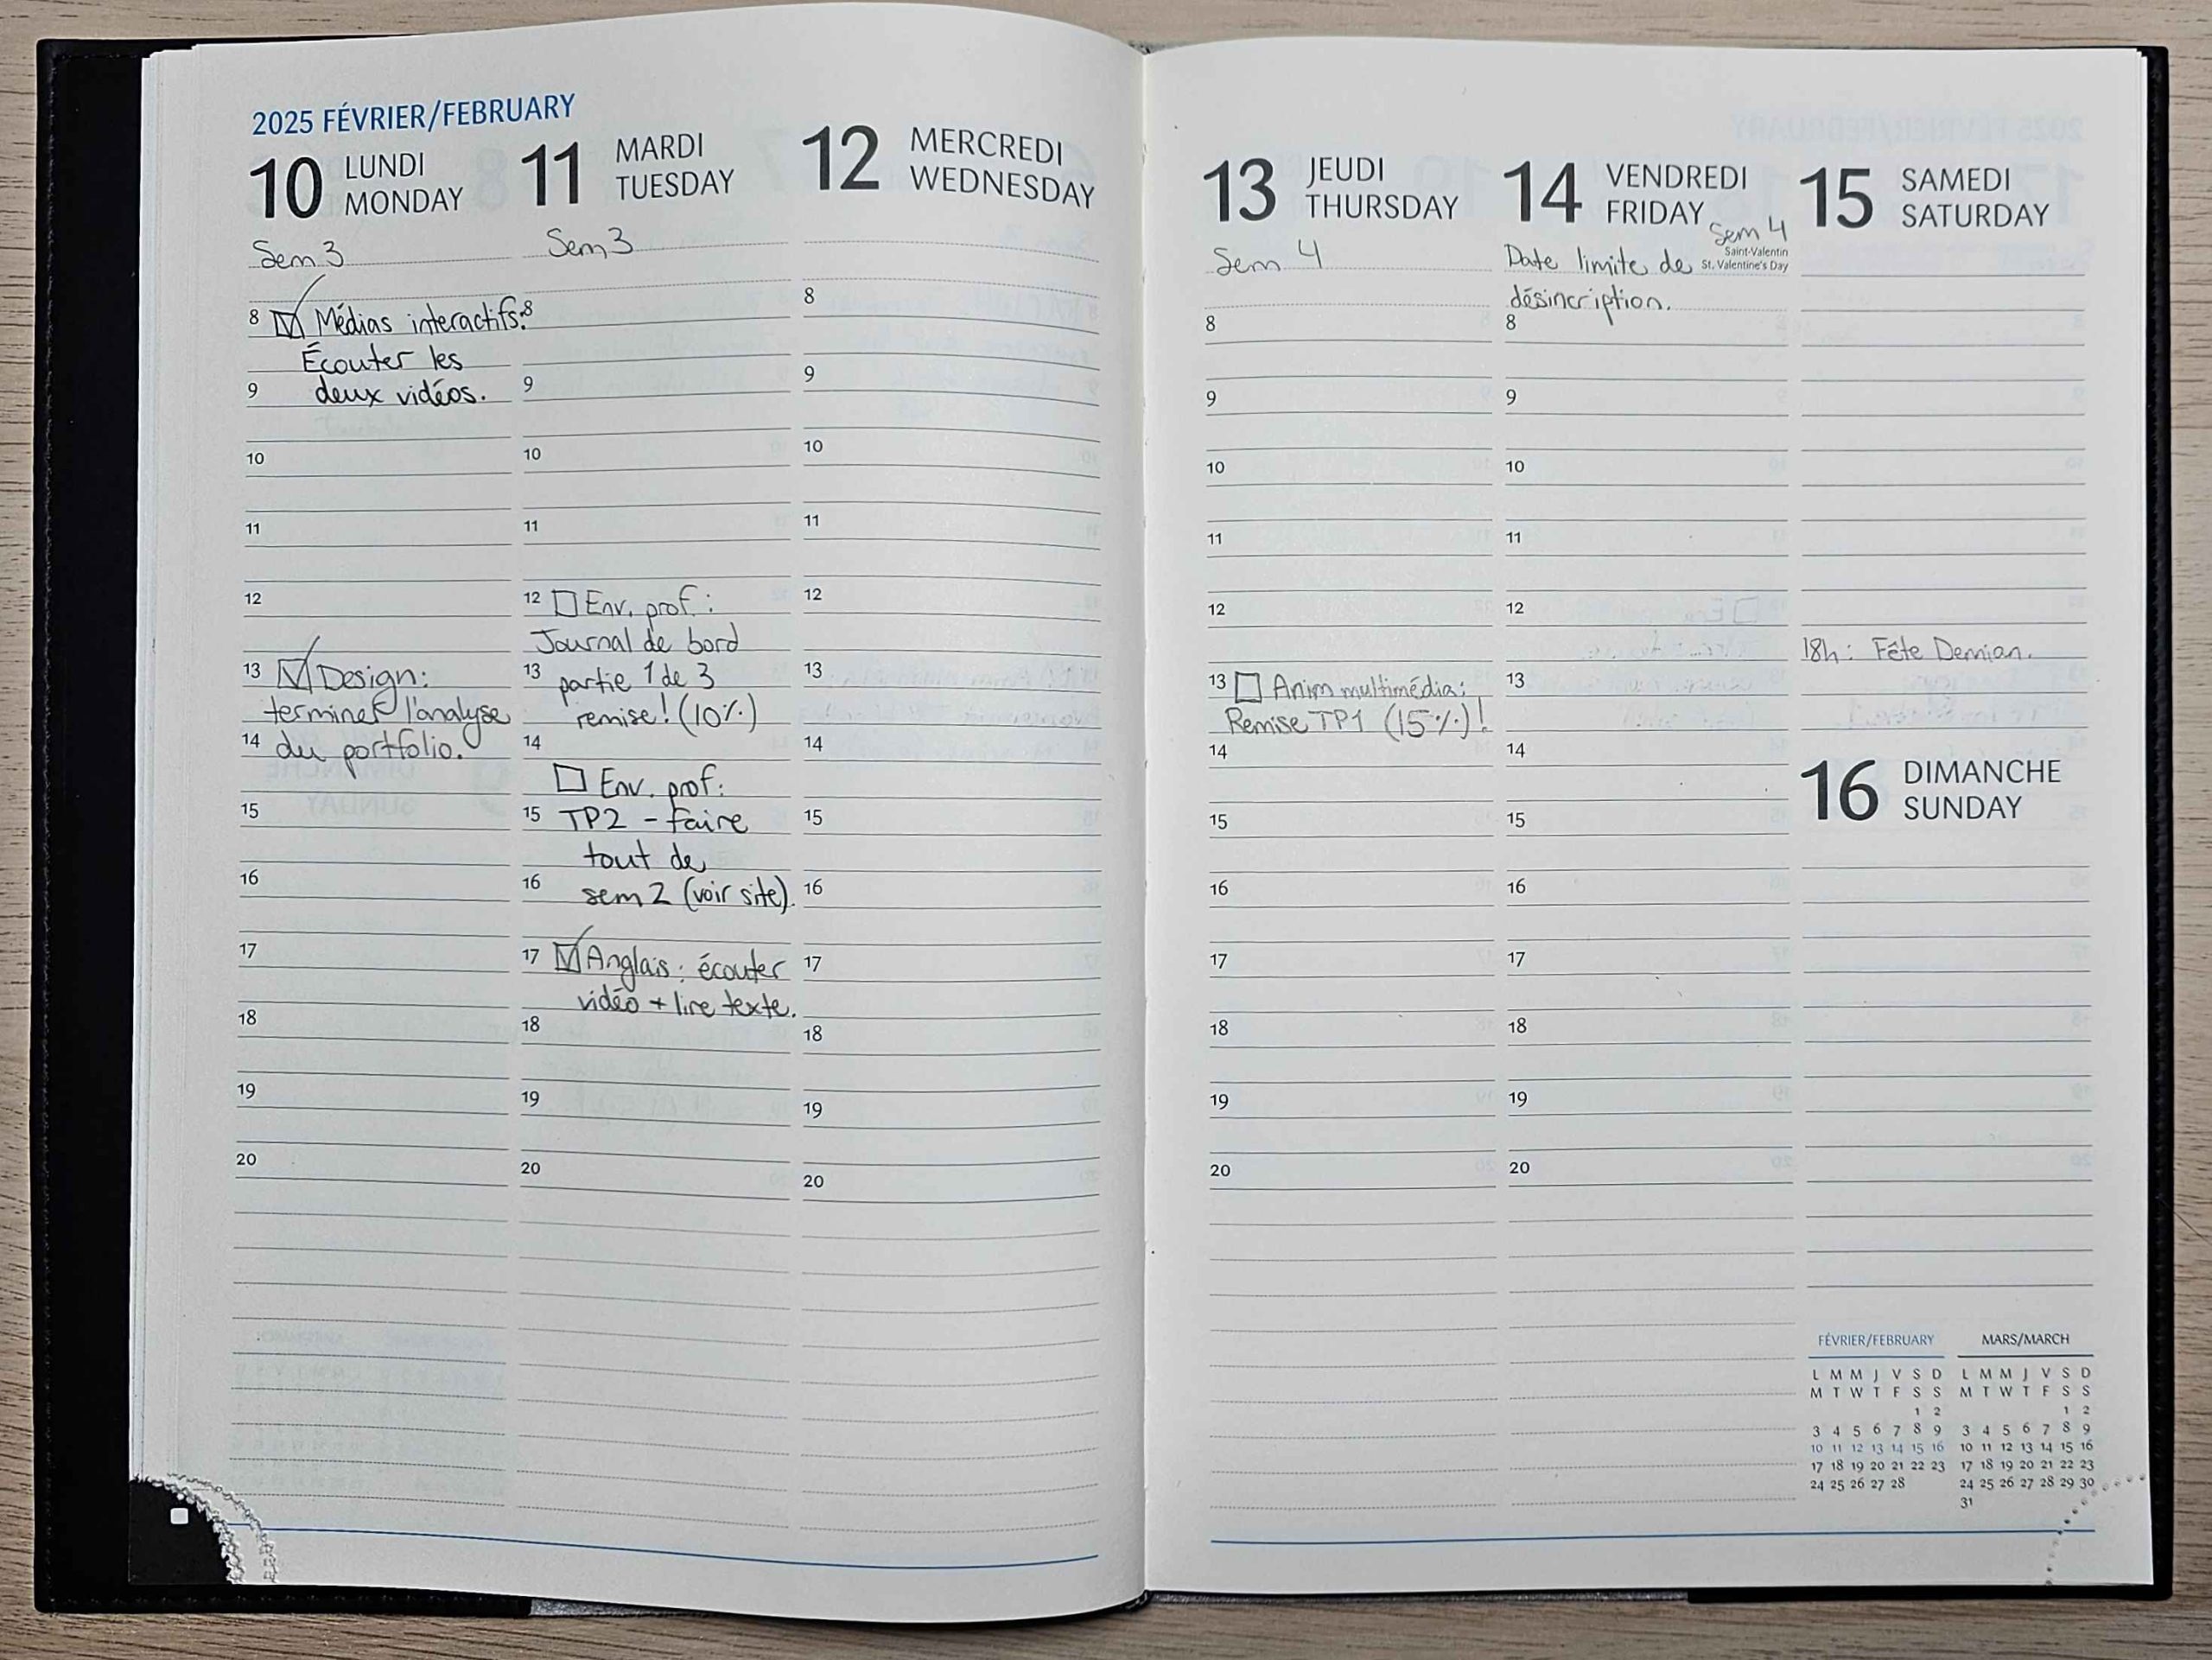 2025 FÉVRIER/FEBRUARY
10 LUNDI
MONDAY
Sem 3
8 Médias interactifs:
Écouter les
9 deux vidéos.
10
11
12
13 Design:
terminer l'analyse
14 du portfolio.
15
16
17
18
19
20
11 MARDI
TUESDAY
Sem 3
8
9
10
11
12 Env. prof.:
Journal de bord
13 partie 1 de 3
remise! (10%)
14
Env. prof:
15 TP2 - faire
tout de
16 sem 2 (voir site).
17 Anglais: écouter
vidéo + lire texte.
18
19
20
12 MERCREDI
WEDNESDAY
8
9
10
11
12
13
14
15
16
17
18
19
20
13 JEUDI
THURSDAY
Sem 4
8
9
10
11
12
13 Anim multimédia:
Remise TP1 (15%)!
14
15
16
17
18
19
20
14 VENDREDI
FRIDAY
Sem 4
Saint-Valentin
St. Valentine's Day
Date limite de
désincription.
8
9
10
11
12
13
14
15
16
17
18
19
20
15 SAMEDI
SATURDAY
18h: Fête Demian.
16 DIMANCHE
SUNDAY
FÉVRIER/FEBRUARY
L M M J V S D
M T W T F S S
1 2
3 4 5 6 7 8 9
10 11 12 13 14 15 16
17 18 19 20 21 22 23
24 25 26 27 28
MARS/MARCH
L M M J V S D
M T W T F S S
1 2
3 4 5 6 7 8 9
10 11 12 13 14 15 16
17 18 19 20 21 22 23
24 25 26 27 28 29 30
31